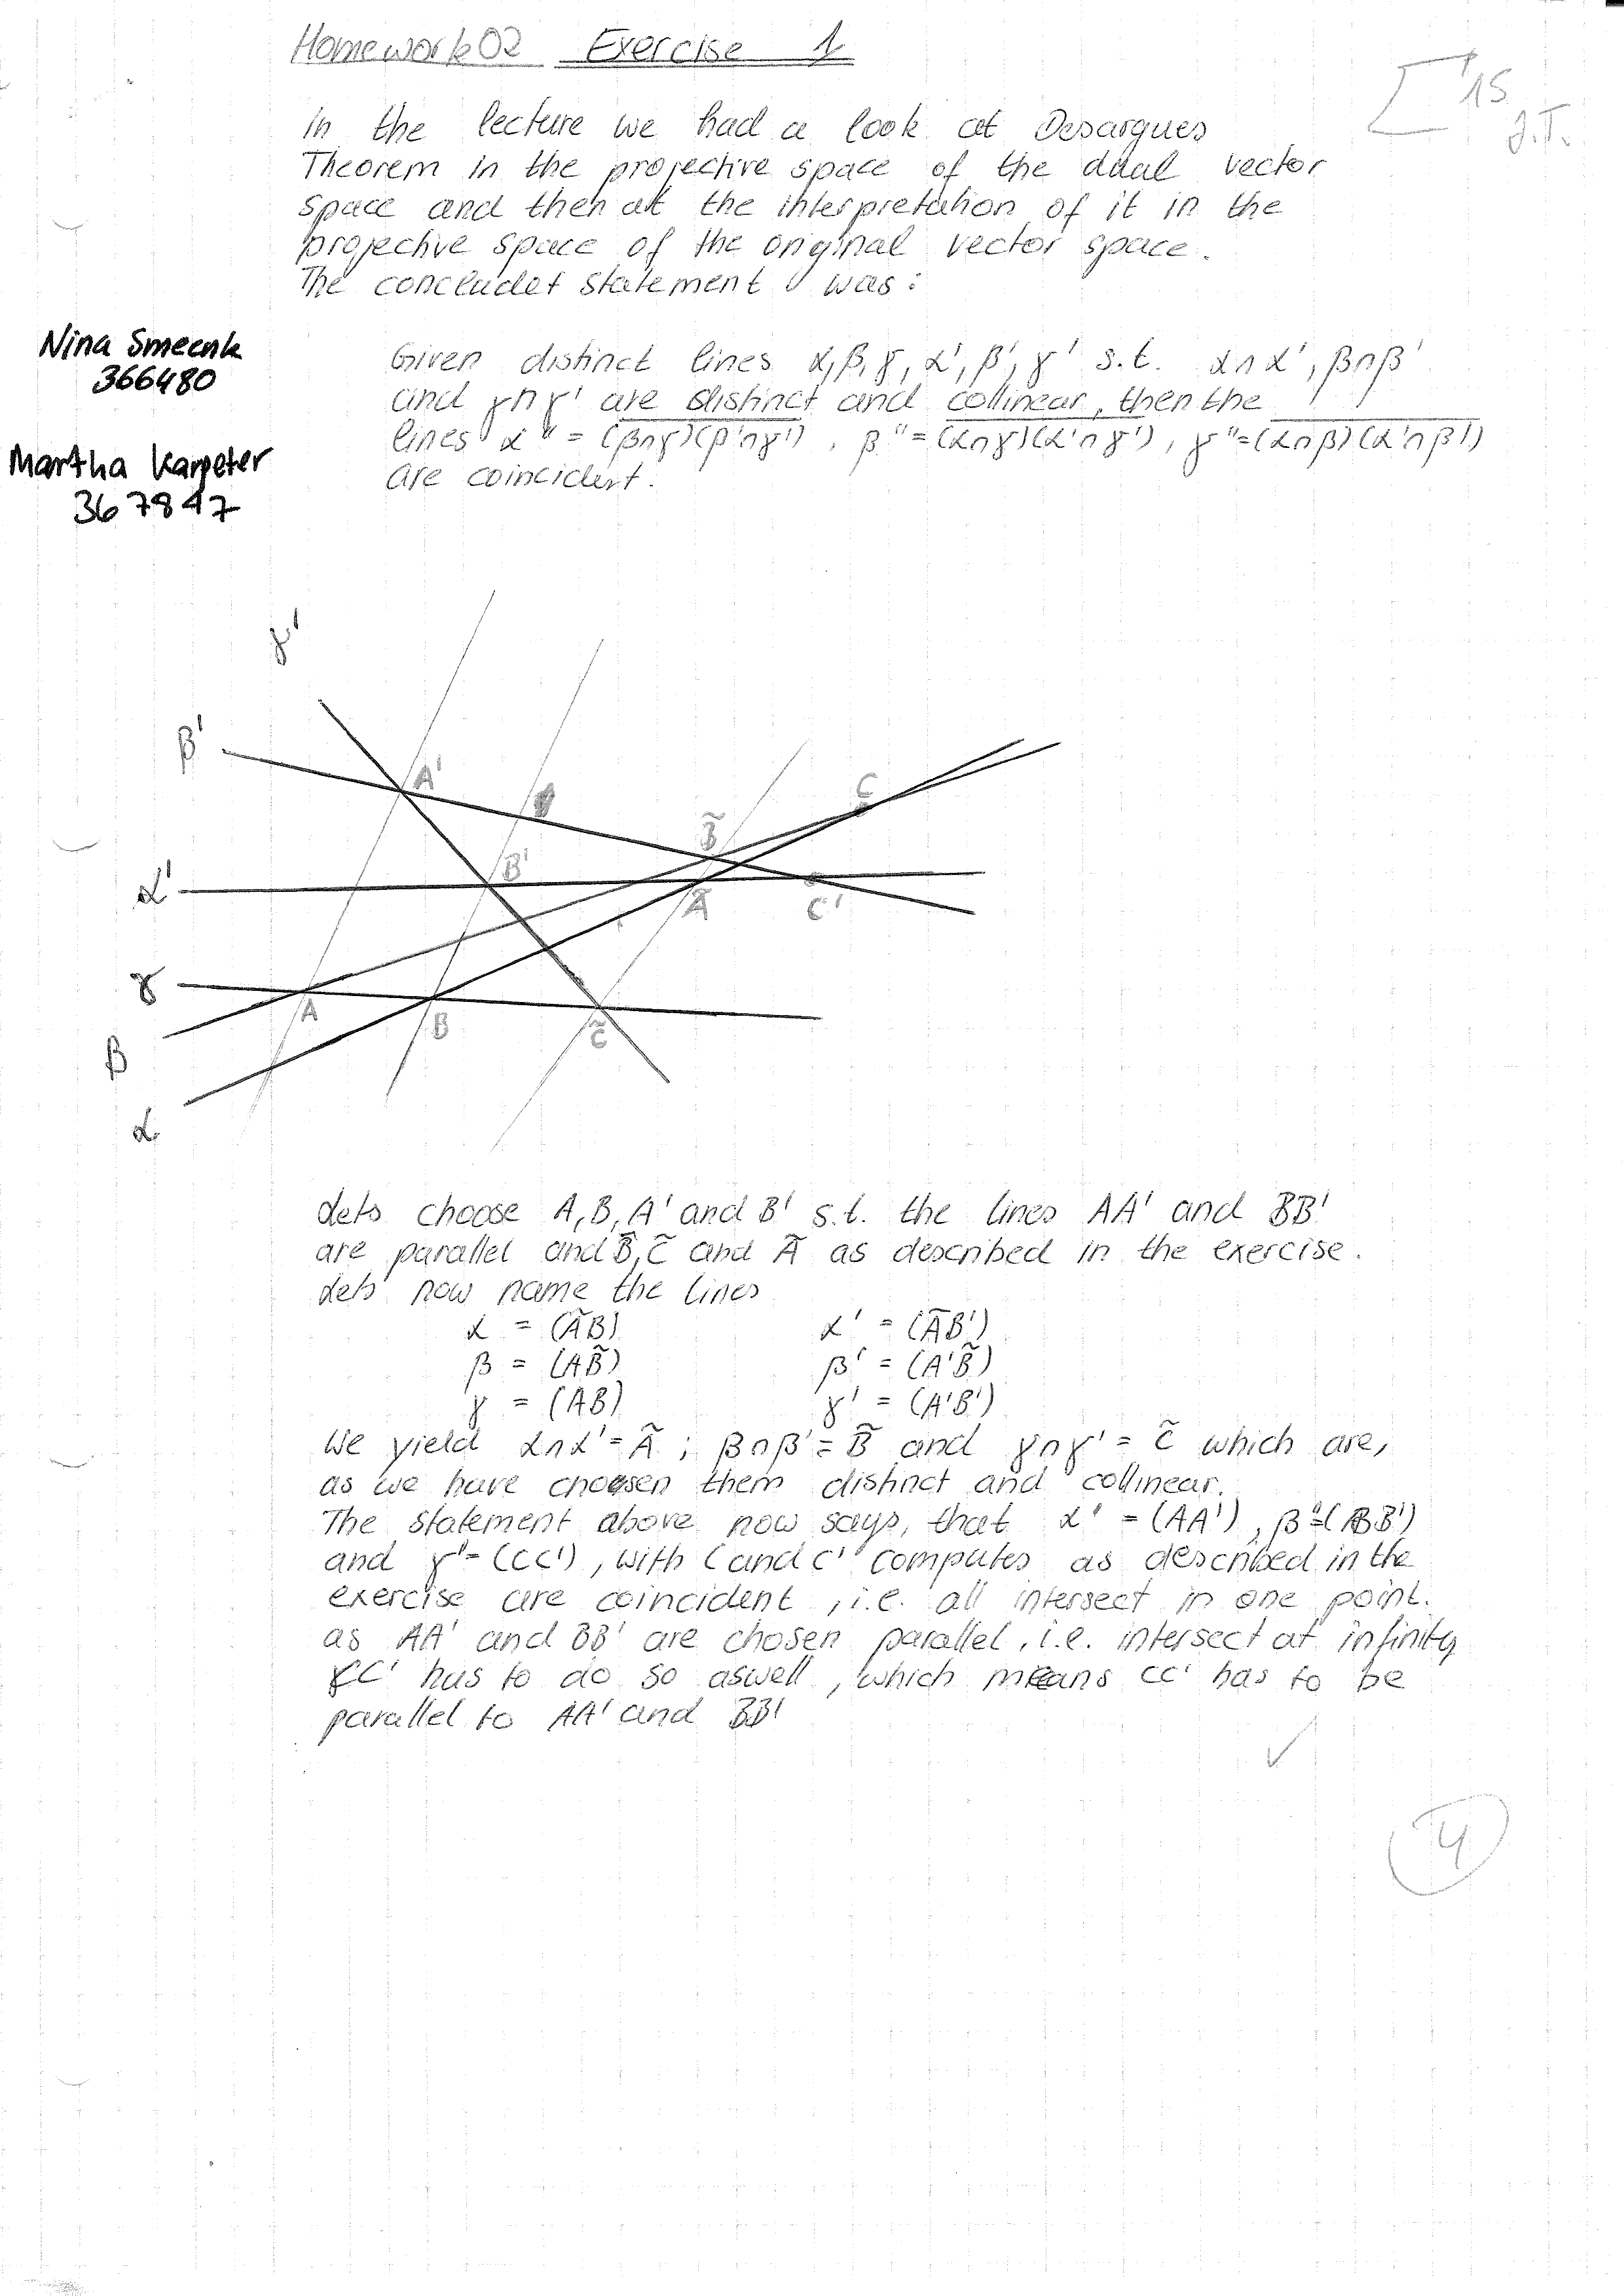 Homework02 Exercise 1
Σ 15
J.T.
In the lecture we had a look at Desargues
Theorem in the projective space of the dual vector
space and then at the interpretation of it in the
projective space of the original vector space.
The concludet statement was:
Nina Smeenk
366480
Martha Karpeter
367847
Given distinct lines α, β, γ, α', β', γ' s.t. α∩α', β∩β'
and γ∩γ' are distinct and collinear, then the
lines α'' = (β∩γ)(β'∩γ'), β'' = (α∩γ)(α'∩γ'), γ'' = (α∩β)(α'∩β')
are coincident.
γ'
β'
A'
C
B̃
α'
B'
Ã
C'
γ
A
B
C̃
β
α
Lets choose A, B, A' and B' s.t. the lines AA' and BB'
are parallel and B̃, C̃ and Ã as described in the exercise.
Lets now name the lines
α = (ÃB) α' = (ÃB')
β = (AB̃) β' = (A'B̃)
γ = (AB) γ' = (A'B')
We yield α∩α' = Ã ; β∩β' = B̃ and γ∩γ' = C̃ which are,
as we have choosen them distinct and collinear.
The statement above now says, that α' = (AA'), β'' = (BB')
and γ'' = (CC'), with C and C' computes as described in the
exercise are coincident, i.e. all intersect in one point.
as AA' and BB' are chosen parallel, i.e. intersect at infinity
CC' has to do so aswell, which means CC' has to be
parallel to AA' and BB'
✓
4